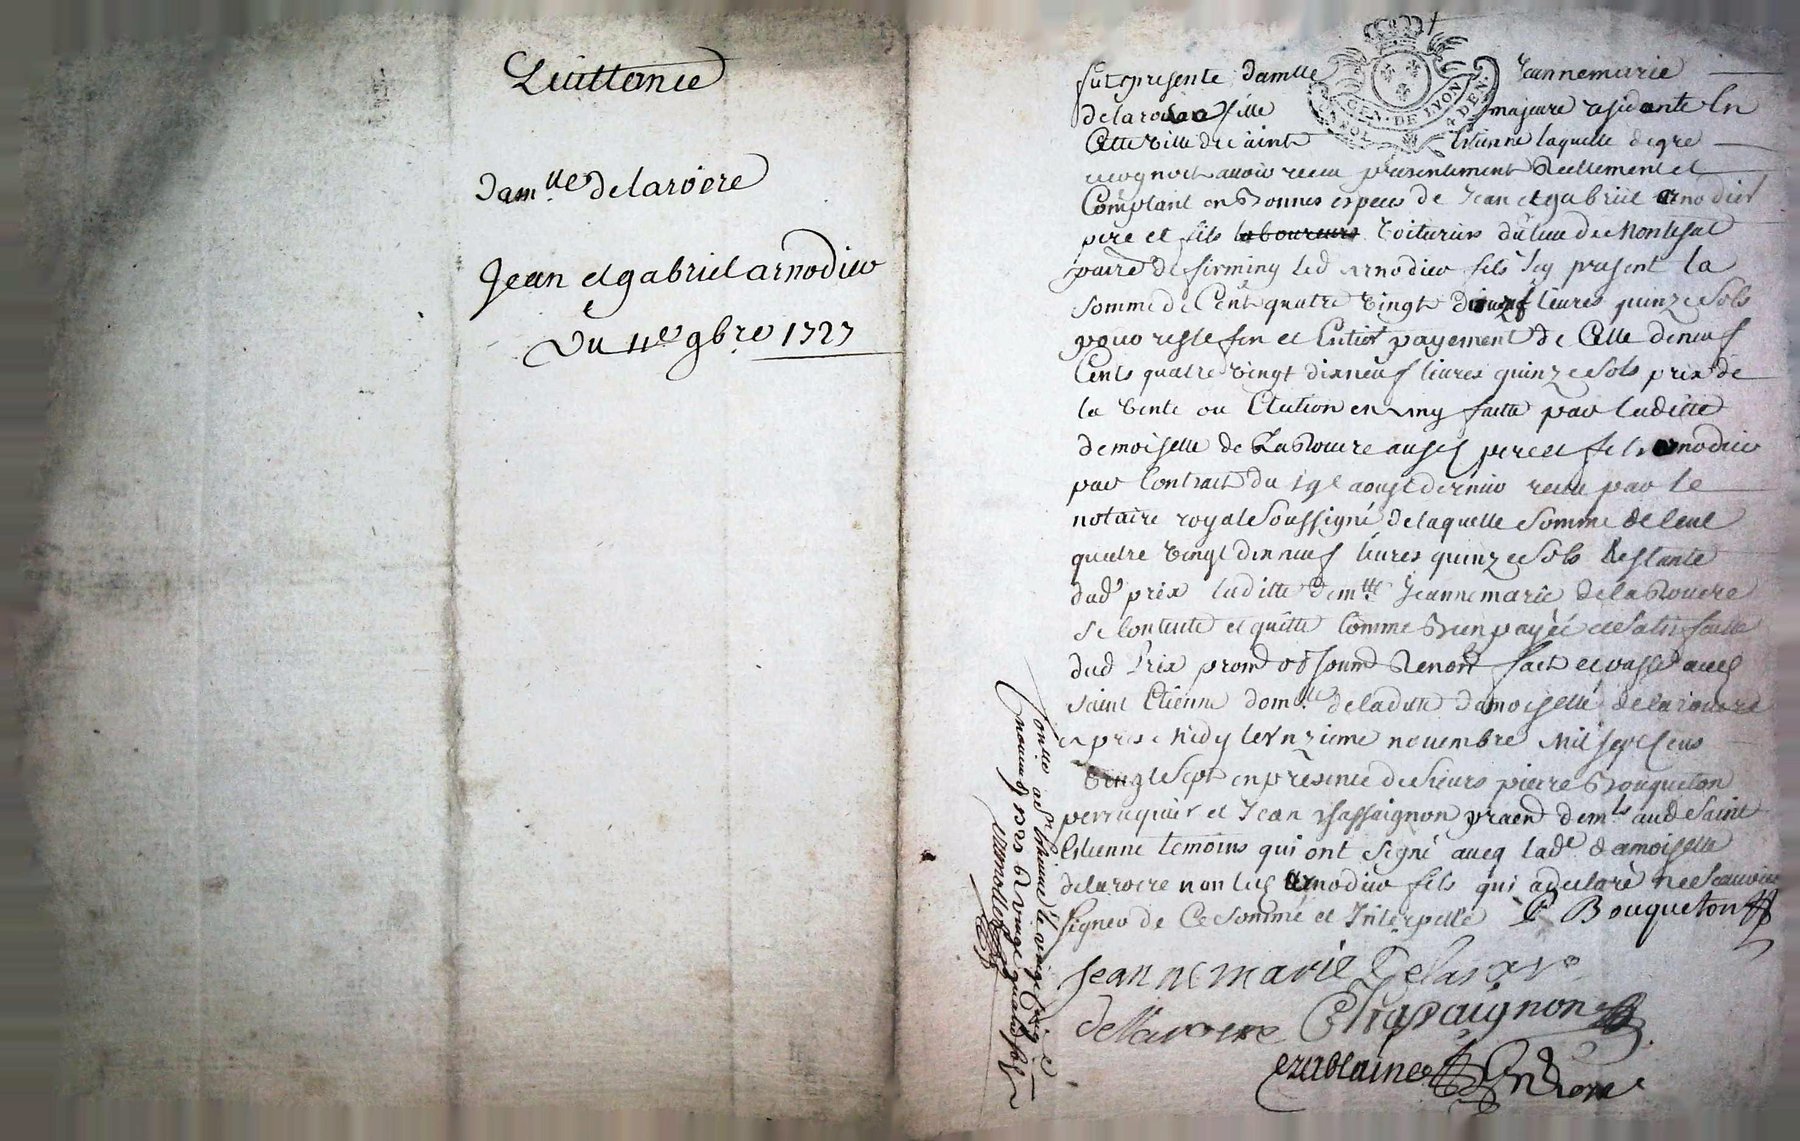 Quittance
Dam.lle delaroere
Jean et gabriel arnodieu
Du 11e 9bre 1727
GEN. DE LYON
4 DEN.
fut presente damlle Jeannemarie
delaroere fille majeure residente En
Cette ville de saint Etienne laquelle de gre
recognoit avoir receu presentement Reellement et
Comptant en Bonnes especes de Jean et gabriel arnodieu
pere et fils laboureurs voituriers du lieu de Montessat
parre de firminy led arnodieu fils Icy present la
somme de Cent quatre vingt dixneuf livres quinze sols
pour reste fin et Entier payement de Celle de neuf
Cents quatre vingt dixneuf livres quinze sols prix de
la vente ou faitte par laditte
demoiselle de LaRouere ausd pere et fils arnodieu
par Contract du 19e aoust dernier receu par le
notaire royal soussigné de laquelle somme de Cent
quatre vingt dixneuf livres quinze sols Restante
dud prix laditte demlle Jeannemarie de la Rouere
se Contente et quitte Comme Bien payée et satisfaitte
dud Prix prom obl soum Renon fait et passé aud
saint Etienne domlle de laditte damoiselle delarouere
apres Midy le Vnzieme novembre Mil sept Cens
vingt sept en presence de sieurs pierre Bouqueton
perruquier et Jean Chassaignon praen demts aud saint
Estienne temoins qui ont signé avec lade damoiselle
delaroere non led arnodieu fils qui a declaré ne scavoir
signer de Ce sommé et Interpellé P Bouqueton
Jeanne marie Delaroere
delaroere Chapaignon
Conlle a St Estienne le vingt
novemb 1727 R vingt quatre sols